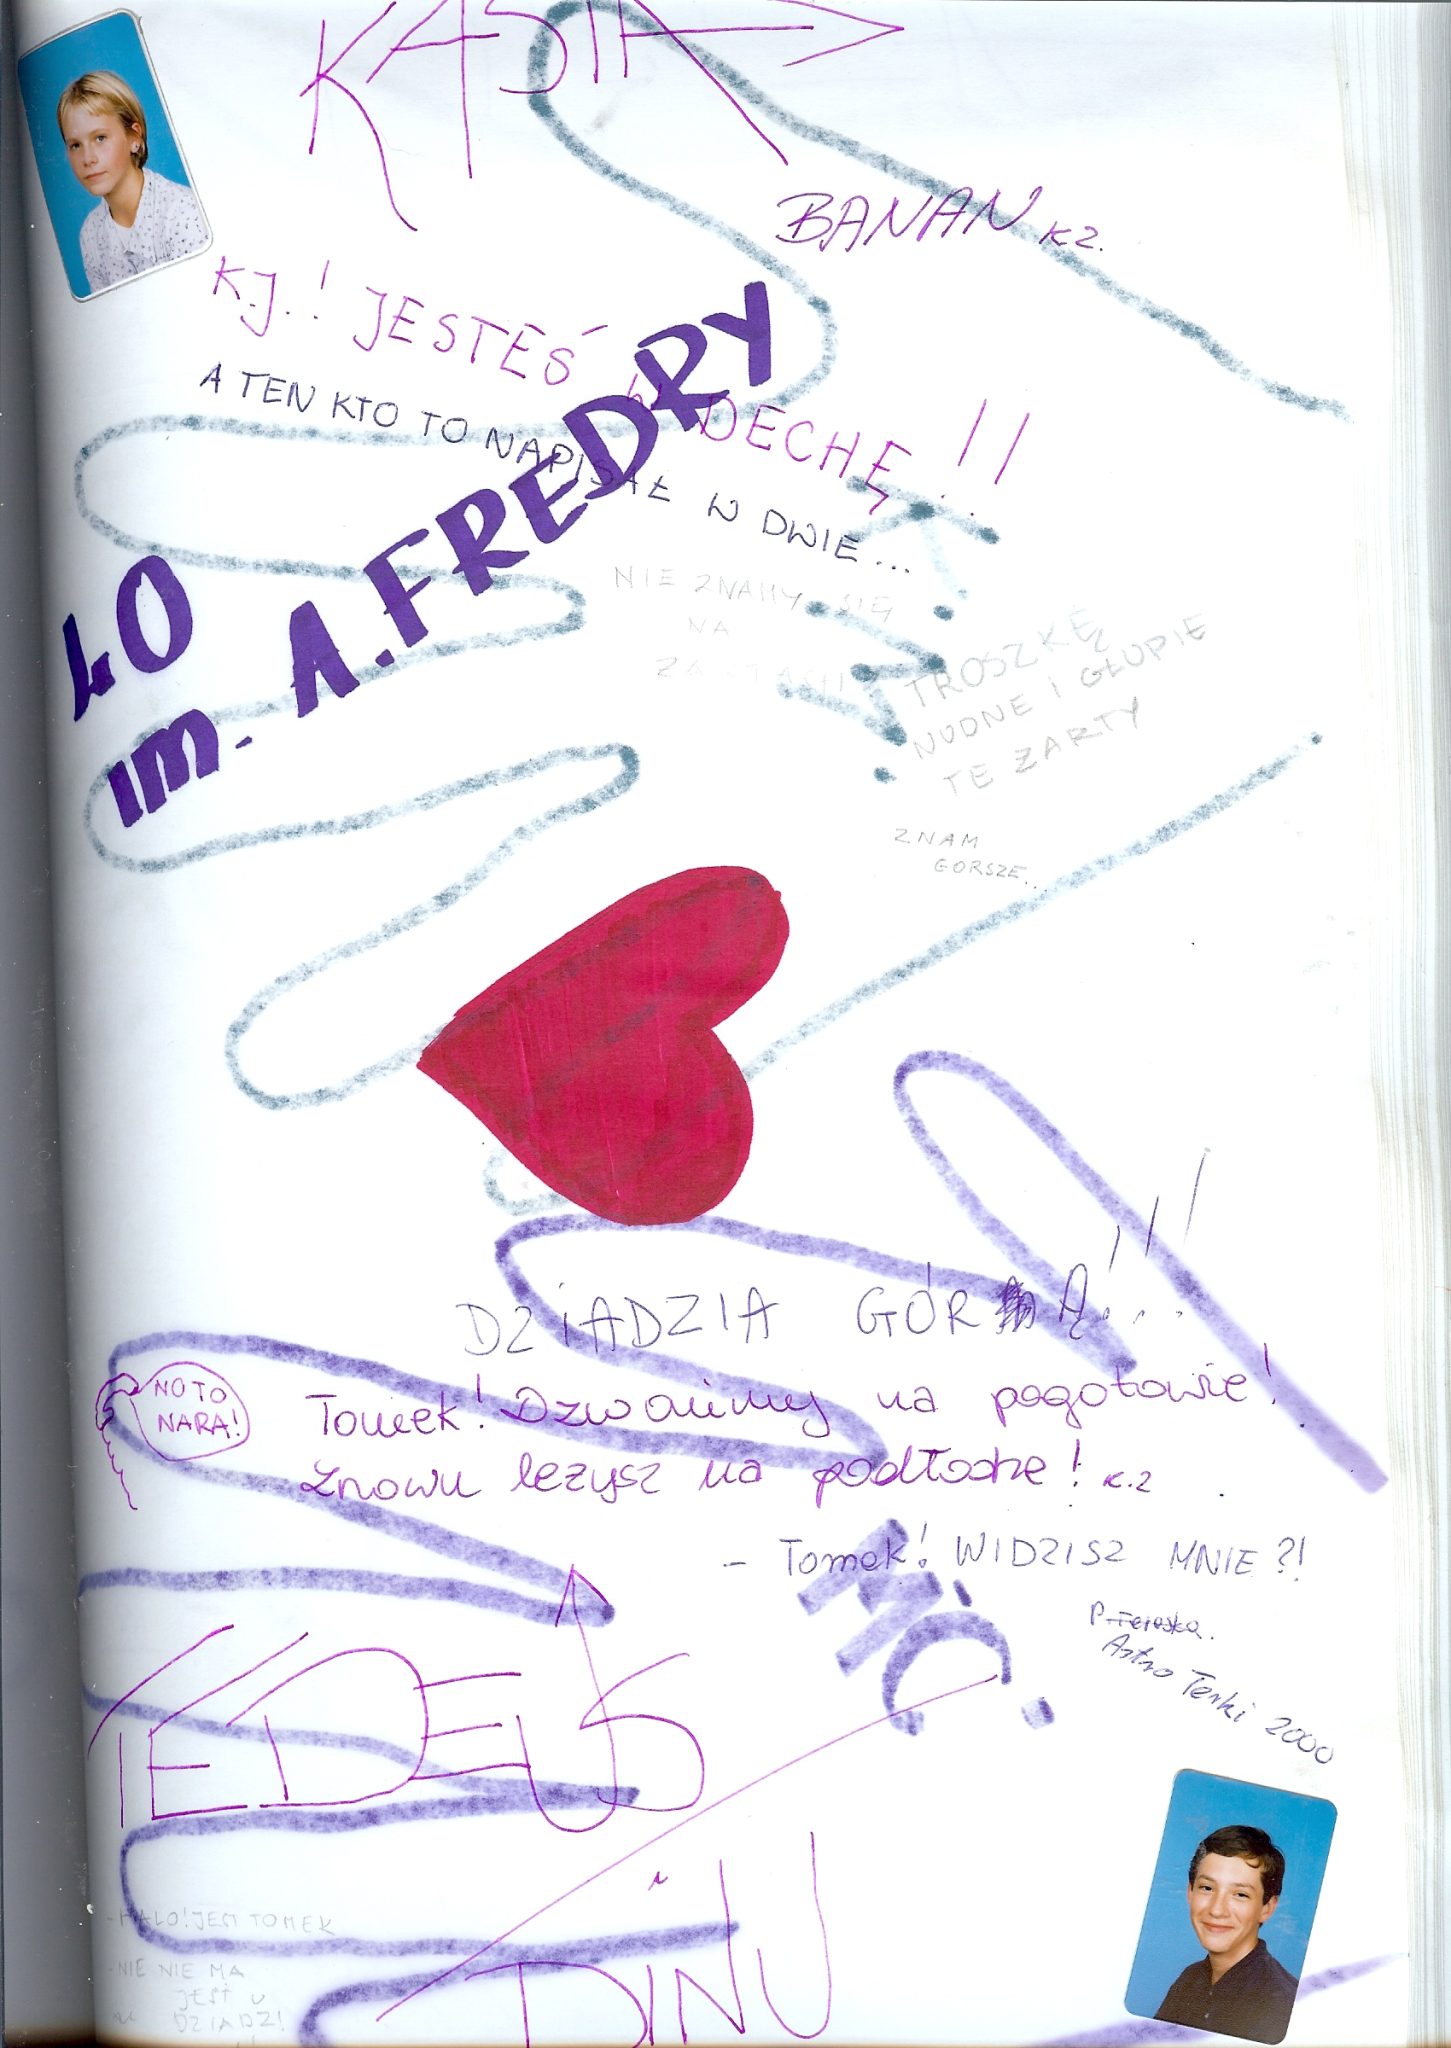 KASIA
BANAN K.Z.
K.J.! JESTEŚ W DECHĘ!!
A TEN KTO TO NAPISAŁ W DWIE...
LO
IM. A.FREDRY
NIE ZNAMY SIĘ
NA
ŻARTACH
TROSZKĘ
NUDNE I GŁUPIE
TE ŻARTY
ZNAM
GORSZE...
DZIADZIA GÓRĄ!!!
NO TO
NARA!
Tomek! Dzwonimy na pogotowie!
Znowu leżysz na podłodze! K.Z
- Tomek! WIDZISZ MNIE?!
MĆ.
P. Tereska.
Astro Terki 2000
TEDEUS
i
DINU
-HALO! JEST TOMEK
-NIE NIE MA
JEST U
DZIADZI